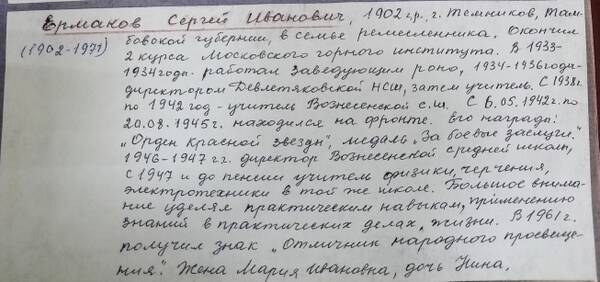 Ермаков Сергей Иванович, 1902 г.р., г. Темников, Там-
(1902-1971) бовской губернии, в семье ремесленника. Окончил
2 курса Московского горного института. В 1933-
1934 годы. работал заведующим роно, 1934-1936 годы-
директором Девлетяковской НСШ, затем учитель. С 1938 г.
по 1942 год - учитель Вознесенской с.ш. С 6.05.1942 г. по
20.08.1945 г. находился на фронте. Его награды:
"Орден Красной звезды", медаль "За боевые заслуги."
1946-1947 гг. директор Вознесенской средней школы,
с 1947 и до пенсии учитель физики, черчения,
электротехники в той же школе. Большое внима-
ние уделял практическим навыкам, применению
знаний в практических делах, жизни. В 1961 г.
получил знак "Отличник народного просвеще-
ния". Жена Мария Ивановна, дочь Нина.